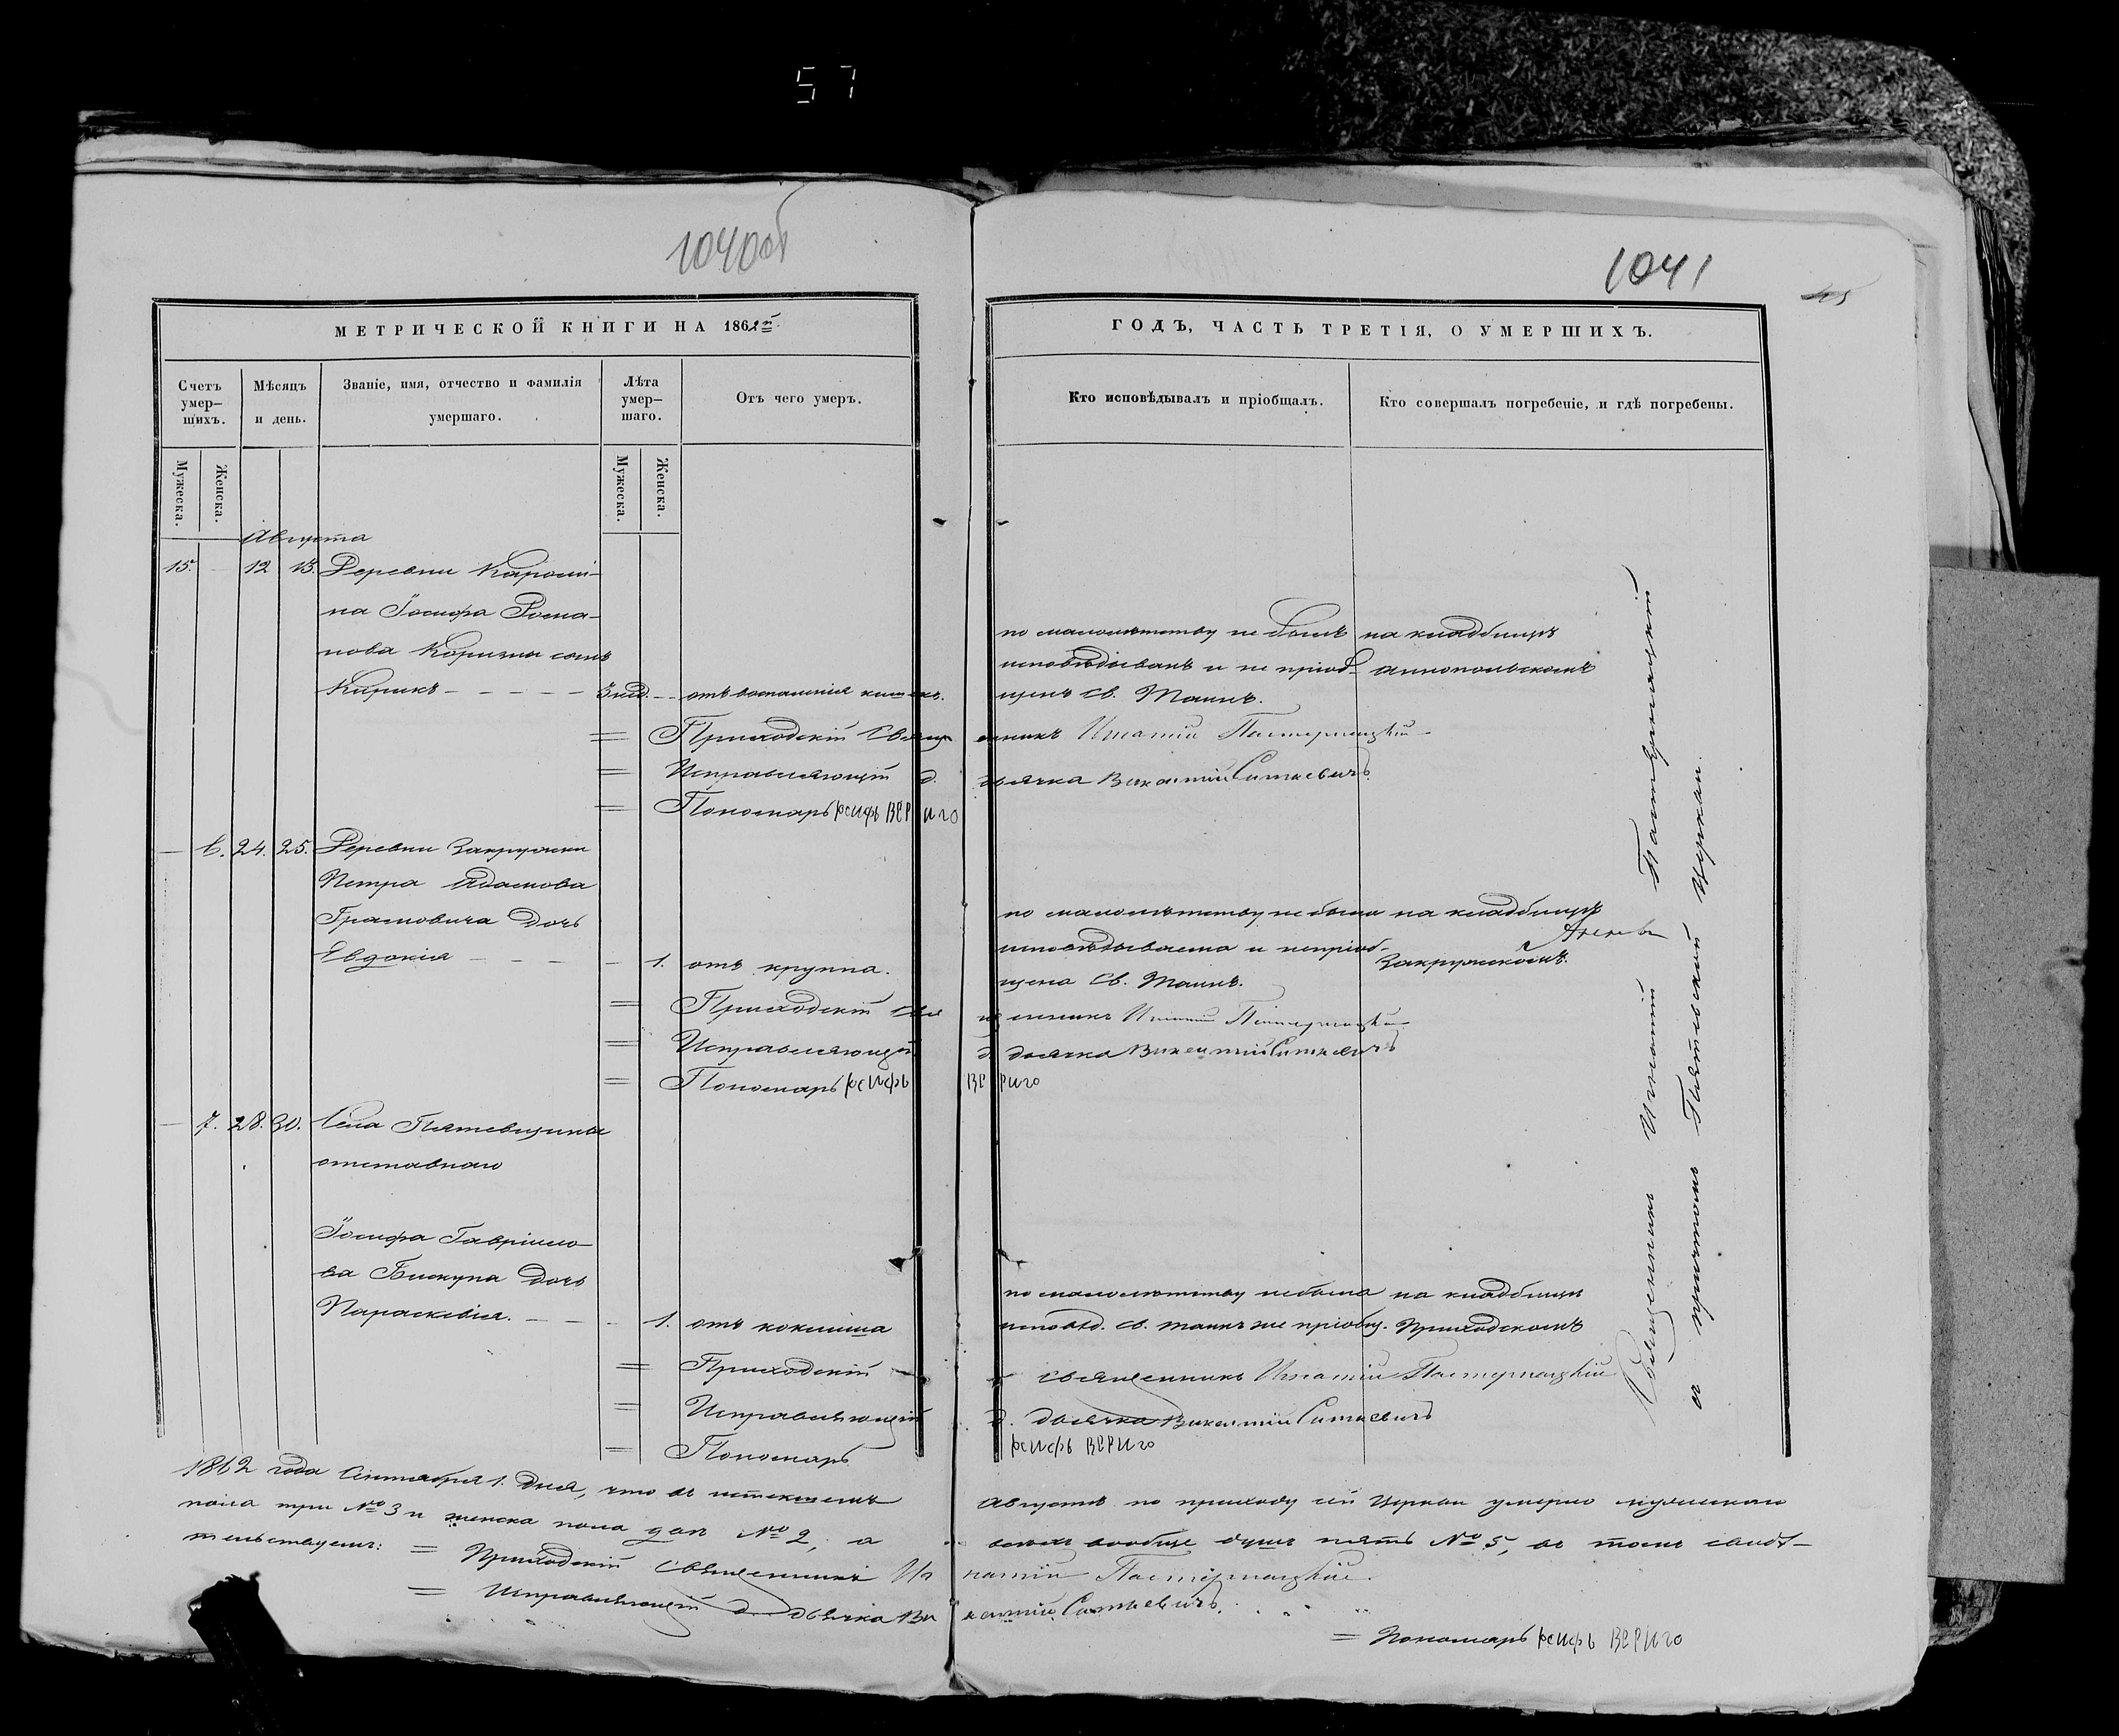 57
1040об
1041
МЕТРИЧЕСКОЙ КНИГИ НА 1862й
ГОДЪ, ЧАСТЬ ТРЕТІЯ, О УМЕРШИХЪ.
Счетъ умер—шихъ.
Мѣсяцъ и день.
Званіе, имя, отчество и фамилія умершаго.
Лѣта умер—шаго.
Отъ чего умеръ.
Кто исповѣдывалъ и пріобщалъ.
Кто совершалъ погребеніе, и гдѣ погребены.
Мужеска.
Женска.
Мужеска.
Женска.
Августа
15. 12 13. Деревни
на Іосифа Рома-
нова Коризны сынъ
Кирикъ отъ воспаленія кишекъ.
по малолѣтству не былъ
исповѣдыванъ и не пріоб-
щенъ Св. Таинъ.
на кладбищѣ
аннопольскомъ
= Приходскій Священникъ Игнатій Пастернацкій
= Исправляющій д. дьячка Викентій Ситкевичъ
= Пономарь Іосифъ ВЕРИГО
— 6. 24. 25. Деревни Закружки
Петра Адамова
Грамовича дочь
Евдокія 1. отъ круппа.
по малолѣтству не была
исповѣдываема и непріоб-
щена Св. Таинъ.
на кладбищѣ
Закружскомъ.
= Приходскій Священникъ Игнатій Пастернацкій
= Исправляющій д. дьячка Викентій Ситкевичъ
= Пономарь Іосифъ ВЕРИГО
— 7. 28. 30. Села Пятевщины
отставнаго
Іосифа Гавріило-
ва Бискупа дочь
Параскевія. 1. отъ коклюша
по малолѣтству небыла
исповѣд. св. таинъ не пріобщ.
на кладбищѣ
Приходскомъ
= Приходскій священникъ Игнатій Пастернацкій
= Исправляющій д. дьячка Викентій Ситкевичъ
= Пономарь Іосифъ ВЕРИГО
1862 года Сентября 1. дня, что въ истекшемъ Августѣ по приходу сей Церкви умерло мужескаго
пола три №3 и женска пола двѣ №2, а всѣхъ вообще душъ пять №5, въ томъ свидѣ-
тельствуемъ: = Приходскій Священникъ Игнатій Пастернацкій.
= Исправляющій д. дьячка Викентій Ситкевичъ.
= Пономарь Іосифъ ВЕРИГО
Священникъ Игнатій Пастернацкій
съ причтомъ Пятевской Церкви.